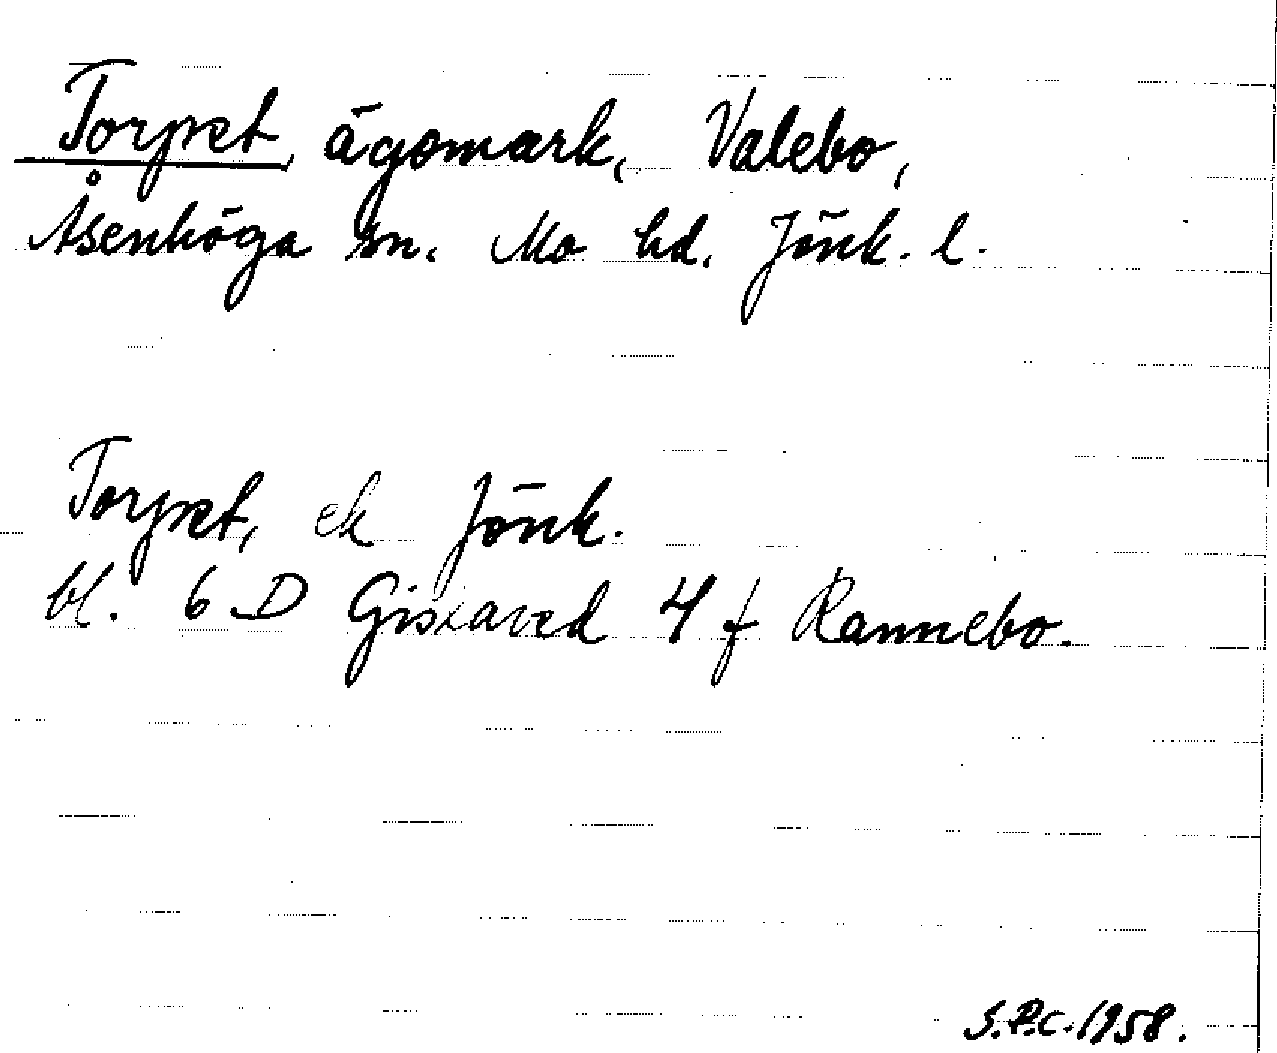 Torpet, ägomark, Valebo,
Åsenhöga sn. Mo hd. Jönk. l.
Torpet, ek Jönk.
bl. 6 D Gislaved 4 f Rannebo.
S.P.C. 1958.